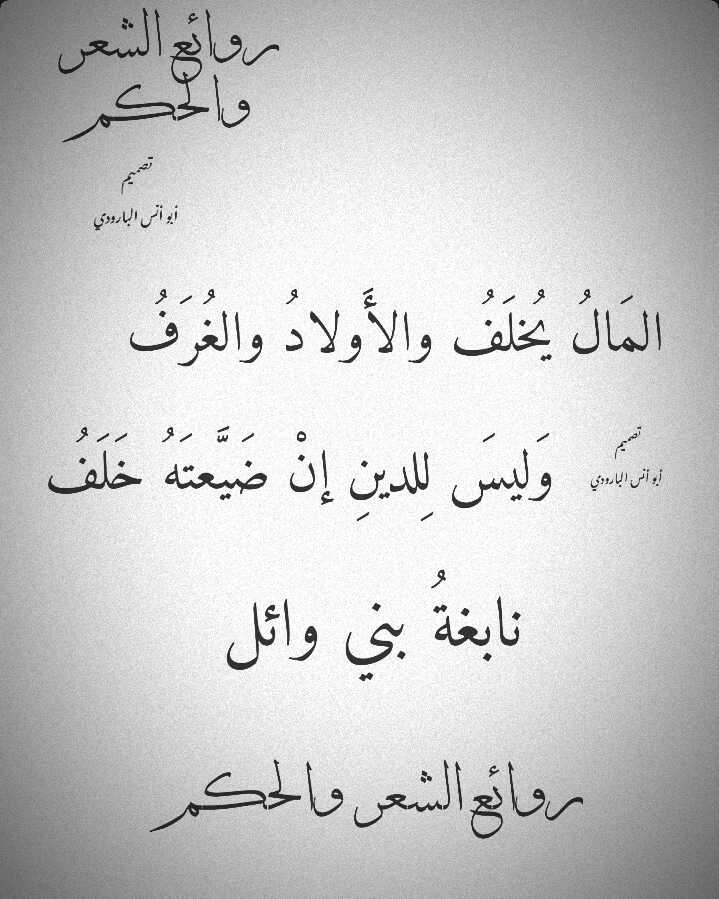 روائع الشعر
والحكم
تصميم
أبو أنس البارودي
المَالُ يُخلَفُ والأَولادُ والغُرَفُ
وَليسَ لِلدينِ إنْ ضَيَّعتَهُ خَلَفُ
تصميم
أبو أنس البارودي
نابغةُ بني وائل
روائع الشعر والحكم